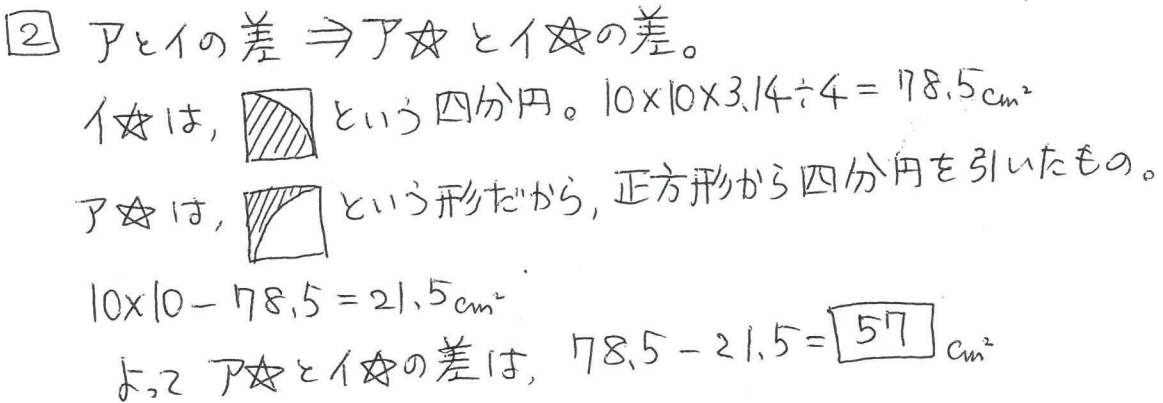 2 アとイの差 ⇒ ア☆とイ☆の差。
イ☆は, という四分円。10×10×3.14÷4=78.5cm²
ア☆は, という形だから, 正方形から四分円を引いたもの。
10×10-78.5=21.5cm²
よって ア☆とイ☆の差は, 78.5-21.5=57cm²